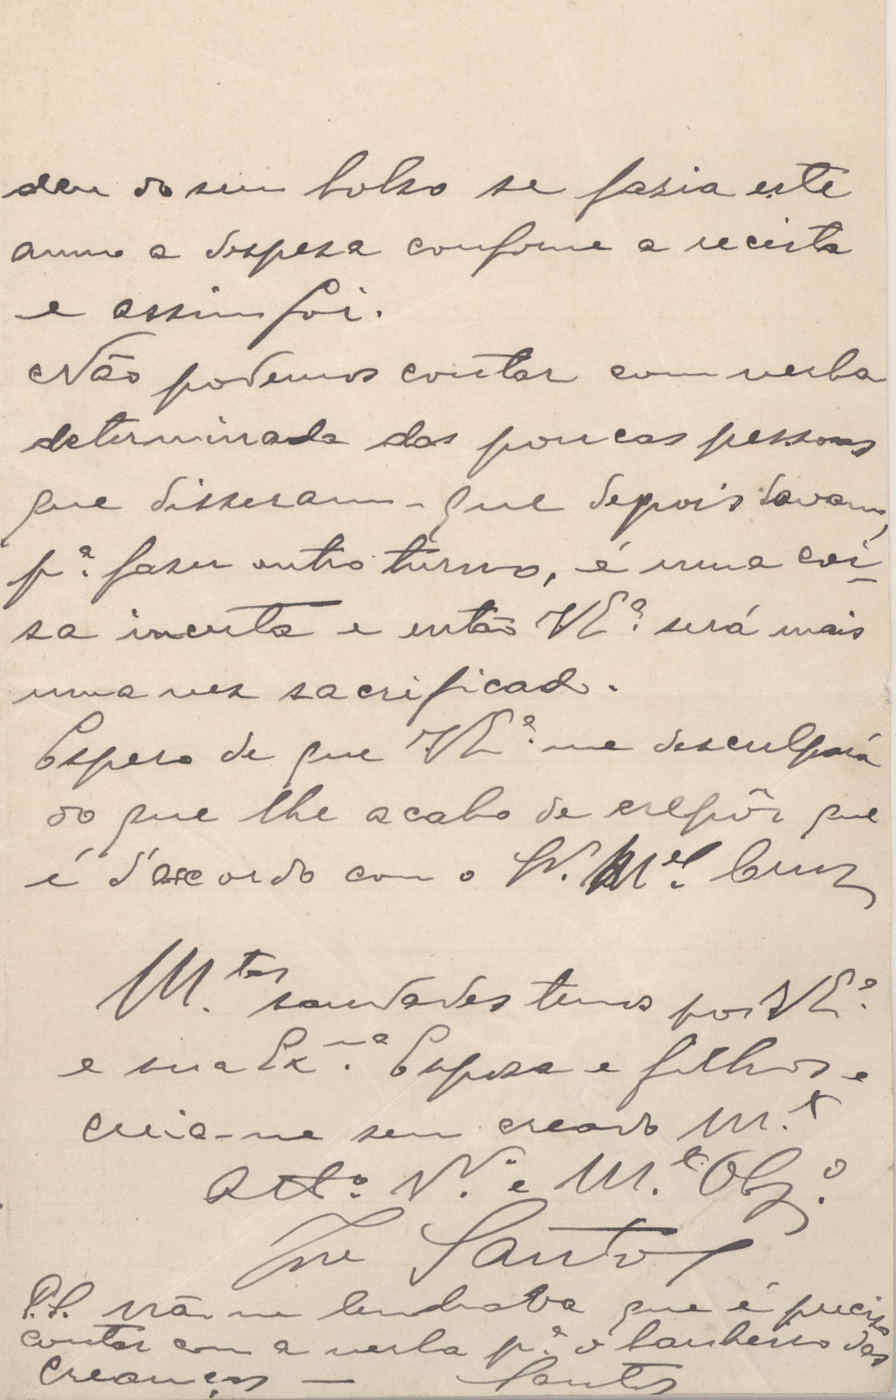 deu do seu bolso se fazia este
anno a despesa conforme a receita
e assim foi.
Não podemos contar com verba
determinada das poucas pessoas
que disseram - que depois davam,
pª. fazer outro turno, é uma coi-
sa incerta e então VEª. será mais
uma vez sacrificado.
Espero de que VEª. me desculpará
do que lhe acabo de expôr que
é d'accordo com o Sr. Mel. Cruz
M.tas saudades temos por VEª.
e sua Ex.ma Esposa e filhos e
creia-me seu creado M.t
Attº. Vº. e M.t Obgº.
José Santos
P.S. Não me lembrava que é preciso
contar com a verba pª. o banheiro das
creanças — Santos